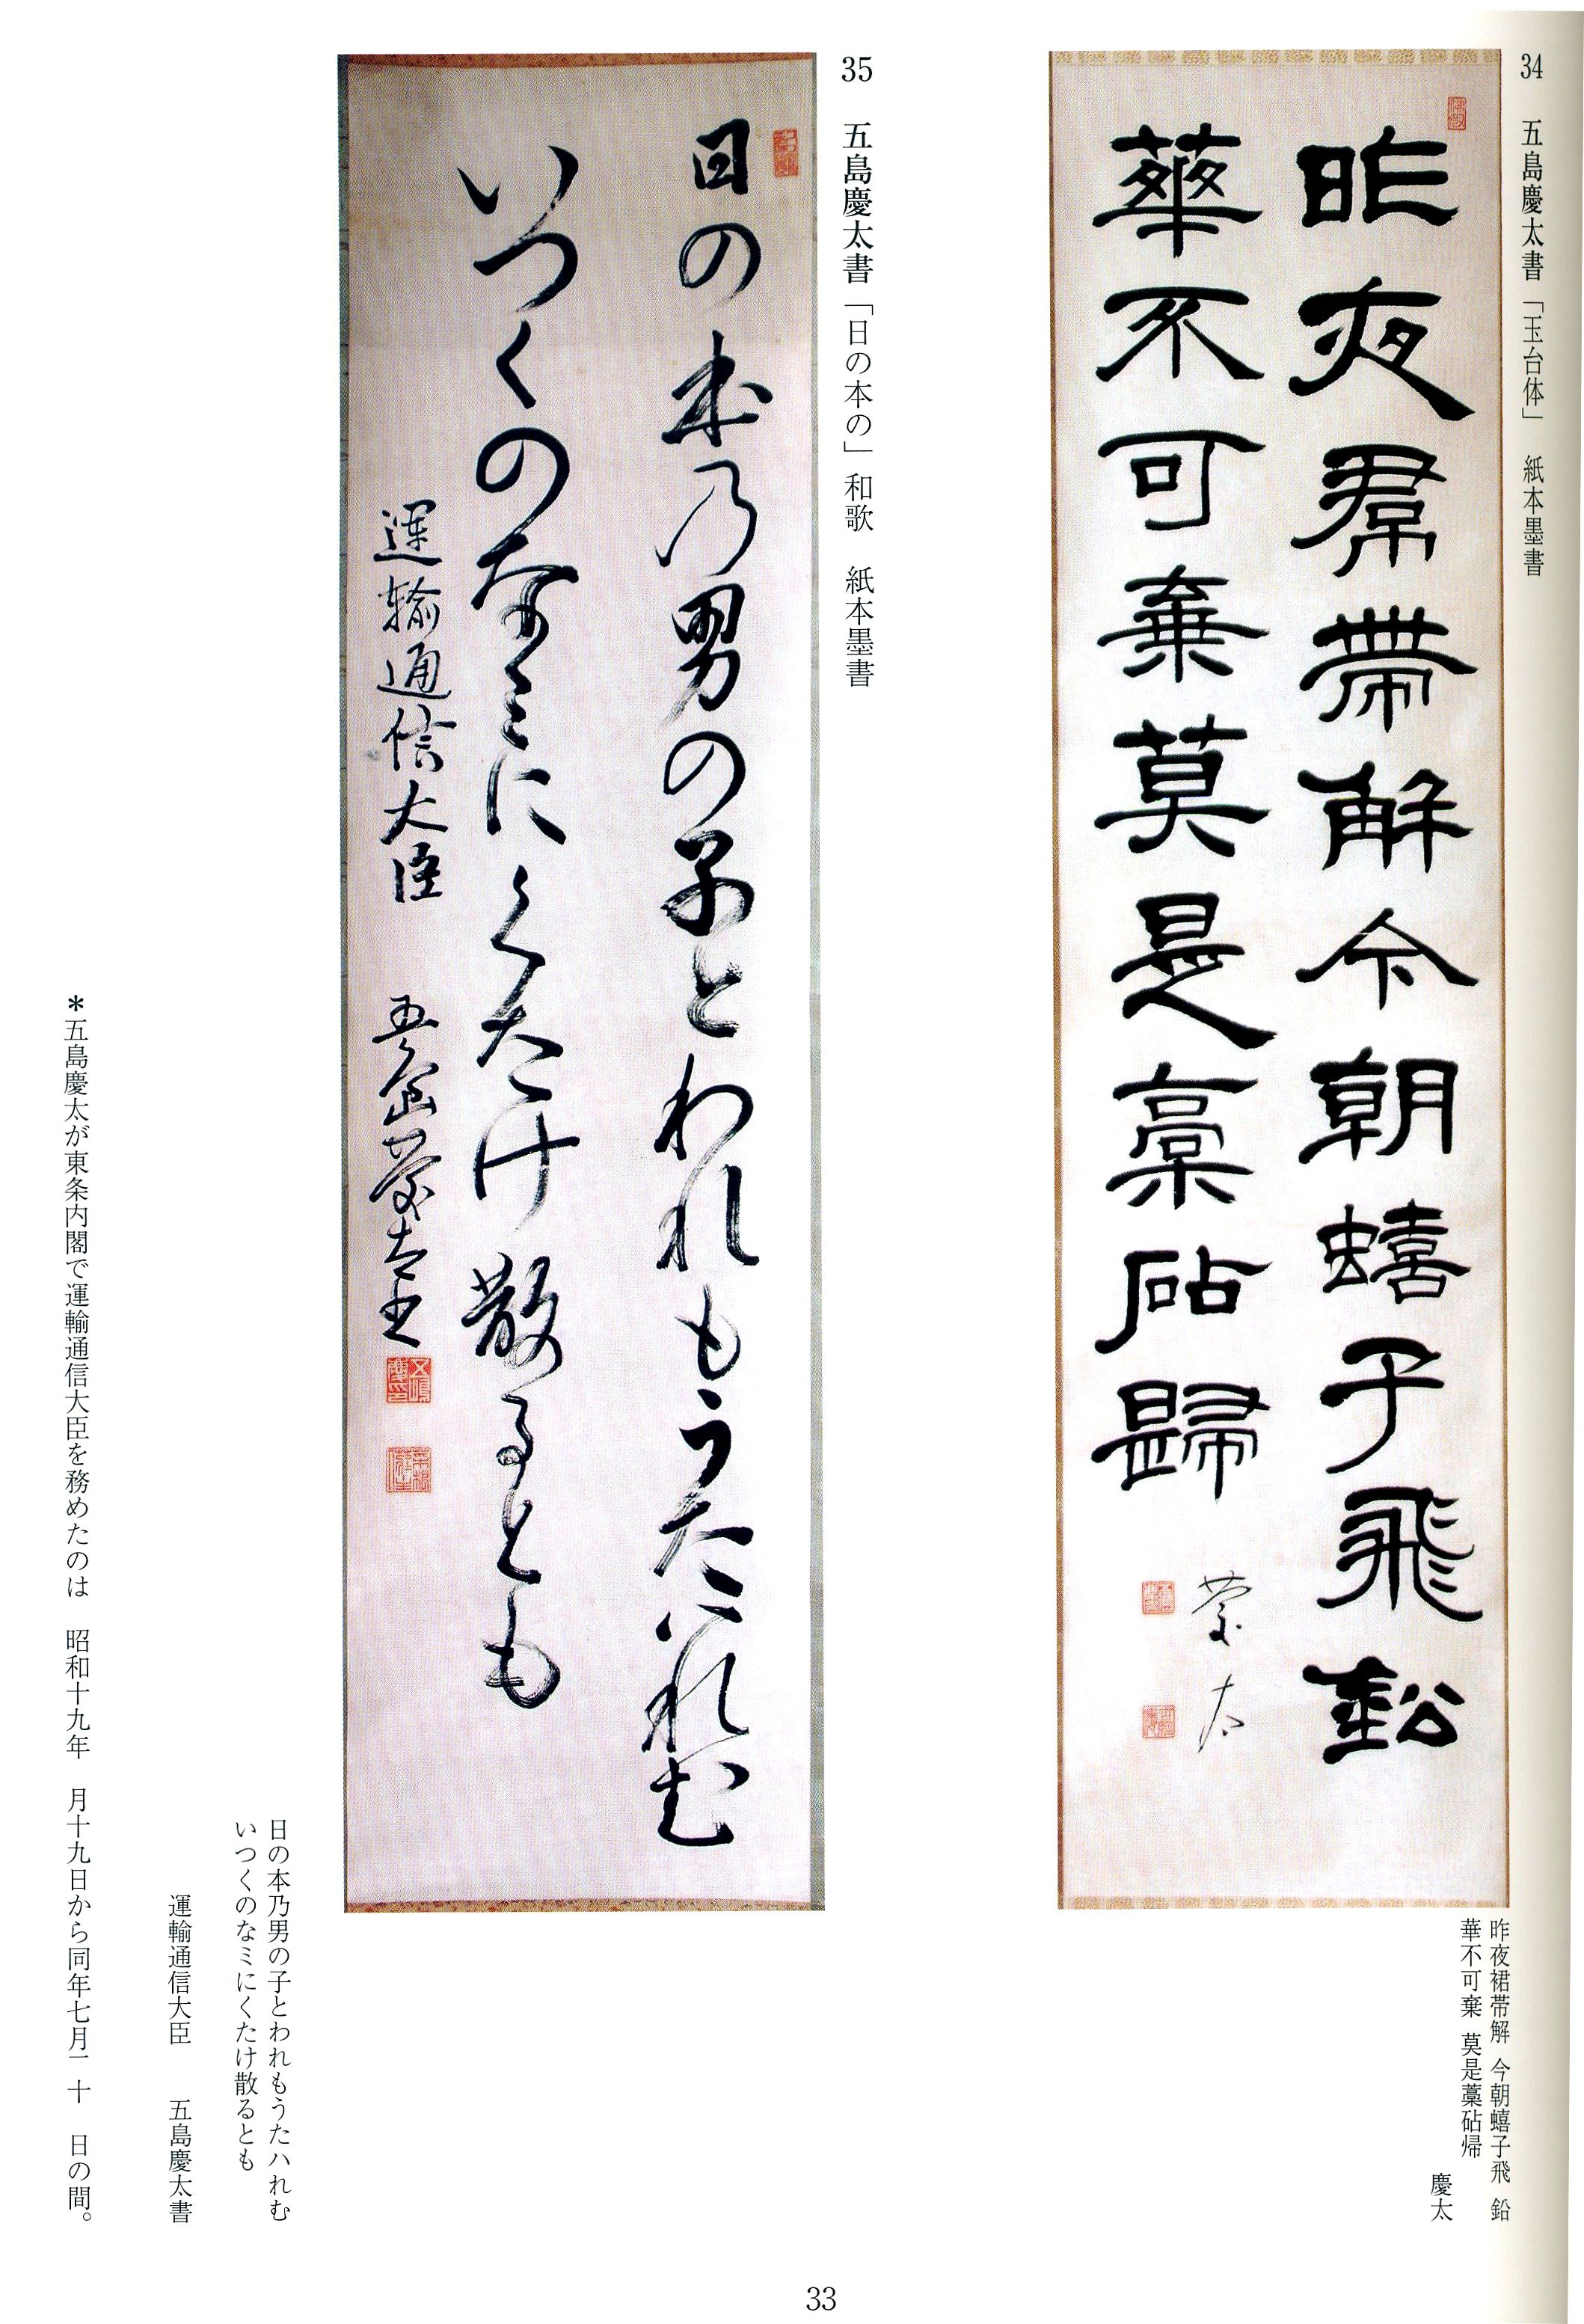 34 五島慶太書「玉台体」 紙本墨書
昨夜裙帯解今朝蟢子飛鈆
華不可棄莫是藁砧歸
慶太
昨夜裙帯解 今朝蟢子飛 鉛
華不可棄 莫是藁砧帰
慶太
35 五島慶太書「日の本の」和歌 紙本墨書
日の本乃男の子とわれもうたハれむ
いつくのなミにくたけ散るとも
運輸通信大臣 五島慶太書
日の本乃男の子とわれもうたハれむ
いつくのなミにくたけ散るとも
運輸通信大臣 五島慶太書
＊五島慶太が東条内閣で運輸通信大臣を務めたのは 昭和十九年 月十九日から同年七月一十 日の間。
33